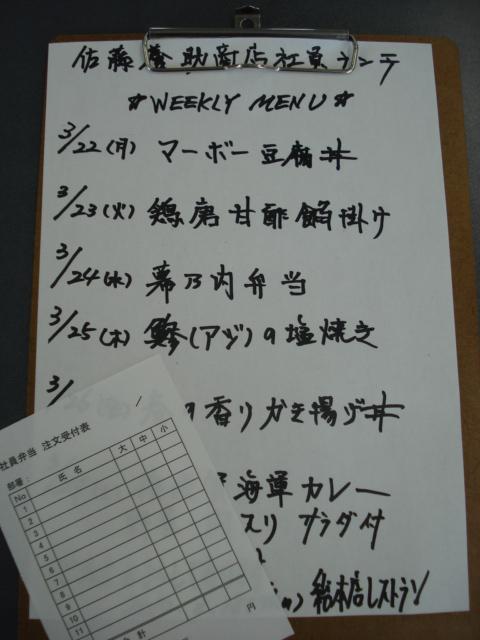 佐藤養助商店社員ランチ
☆WEEKLY MENU☆
3/22(月) マーボー豆腐丼
3/23(火) 鶏唐甘酢餡掛け
3/24(水) 幕乃内弁当
3/25(木) 鯵(アジ)の塩焼き
3/
の香りかき揚げ丼
海軍カレー
サラダ付
総本店レストラン
社員弁当 注文受付表
/
部署:
No 氏名 大 中 小
1
2
3
4
5
6
7
8
9
10
11
合計 円